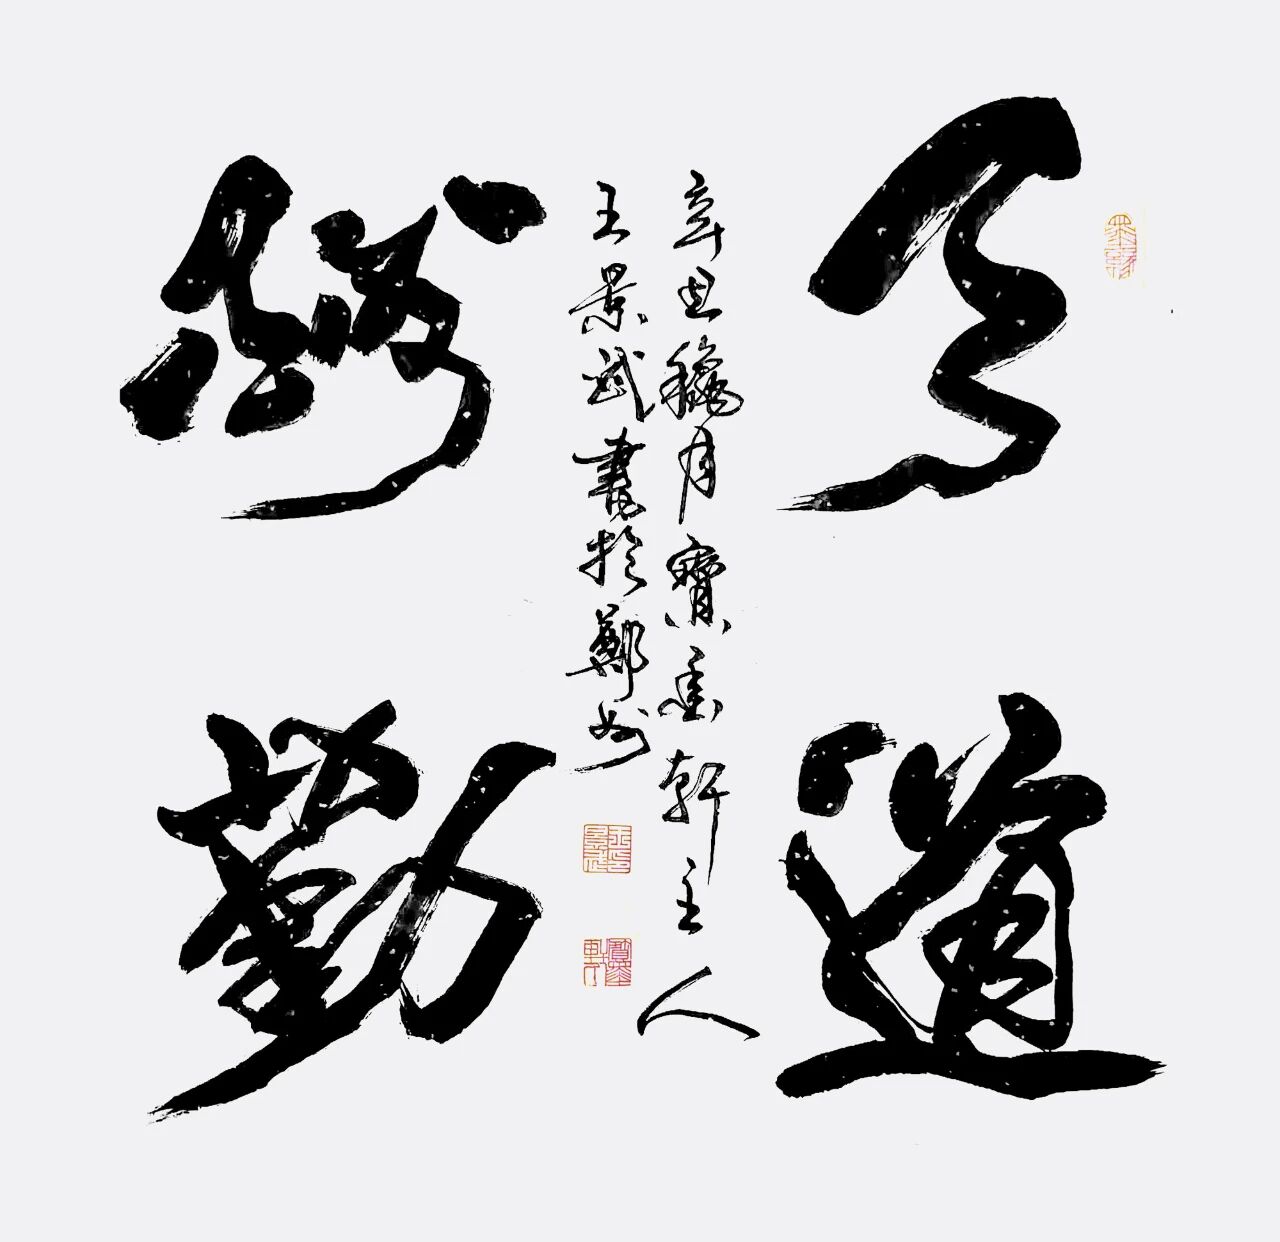 天道
辛丑穐月寶墨軒主人
王景武書於鄭州
酬勤